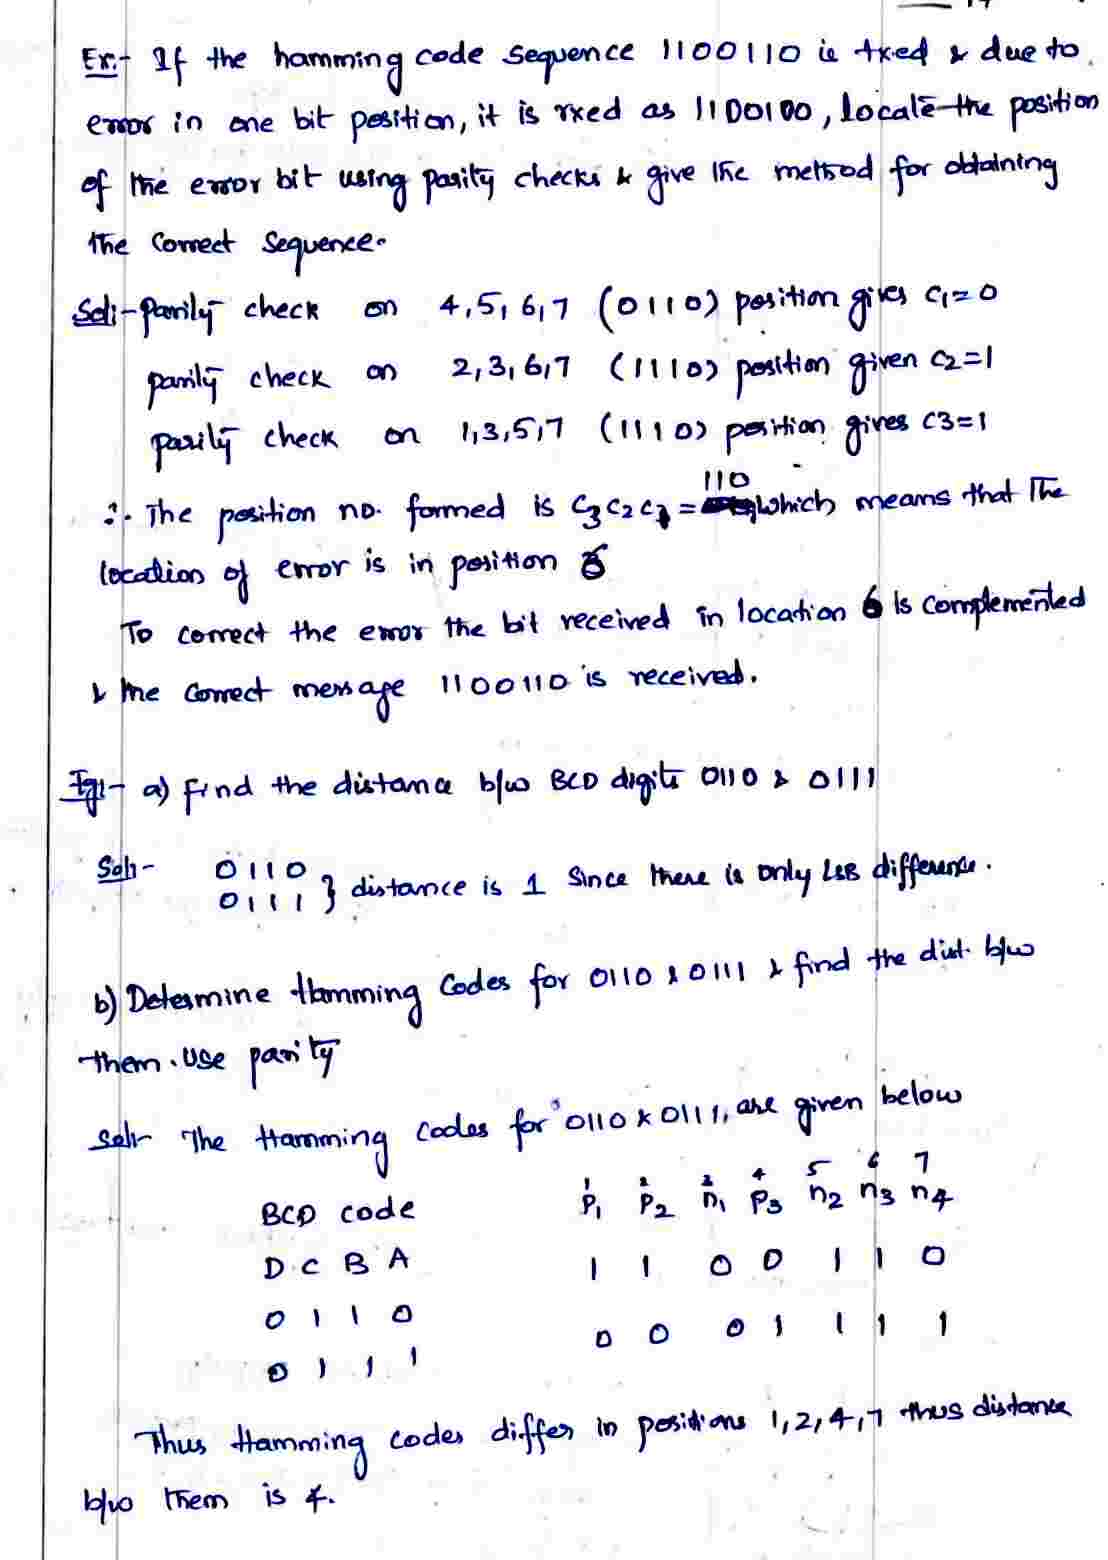 Ex:- If the hamming code sequence 1100110 is txed & due to
error in one bit position, it is rxed as 1100100, locate the position
of the error bit using parity checks & give the method for obtaining
the correct sequence.
Sol:- parity check on 4,5,6,7 (0110) position gives c1=0
parity check on 2,3,6,7 (1110) position given c2=1
parity check on 1,3,5,7 (1110) position gives c3=1
110
∴ The position no. formed is C3C2C1 = which means that The
location of error is in position 6
To correct the error the bit received in location 6 is complemented
& the correct message 1100110 is received.
Eg:- a) Find the distance b/w BCD digits 0110 & 0111
Sol:- 0110
0111 } distance is 1 Since there is only LSB difference.
b) Determine Hamming Codes for 0110 & 0111 & find the dist. b/w
them. Use parity
Sol:- The Hamming codes for 0110 & 0111, are given below
1 2 3 4 5 6 7
BCD code P1 P2 n1 P3 n2 n3 n4
D C B A 1 1 0 0 1 1 0
0 1 1 0 0 0 0 1 1 1 1
0 1 1 1
Thus Hamming codes differ in positions 1,2,4,7 thus distance
b/w them is 4.